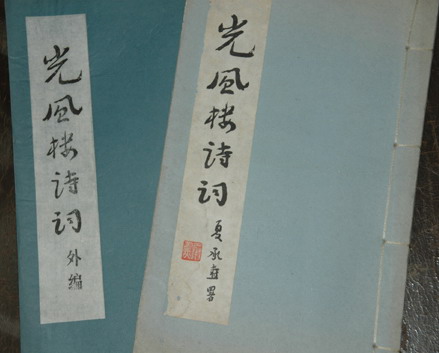 光风楼诗词
外编
光风楼诗词
夏承焘署